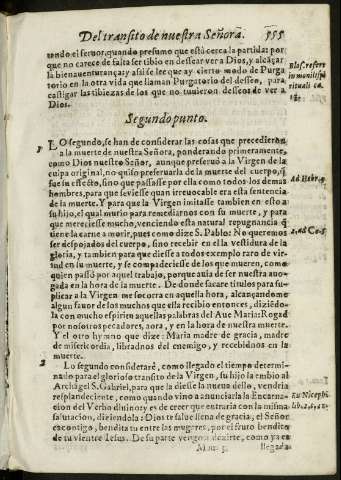 Del transito de nuestra Señora. 555
tondo el seruor, quando presumo que està cerca la partida: por
que no carece de falta ser tibio en dessear ver a Dios, y alcãçar
la bienauenturança y assi se lee que ay cierto modo de Purga
torio en la otra vida que llaman Purgatorio del desseo, para
castigar las tibiezas de los que no tuuieron desseos de ver a
Dios.
Blos. refert
in monili spi
rituali ca.
Segundo punto.
LO segundo, se han de considerar las cosas que precedieron
a la muerte de nuestra Señora, ponderando primeramente,
como Dios nuestro Señor, aunque preseruò a la Virgen de la
culpa original, no quiso preseruarla de la muerte del cuerpo, q̃
fue su efecto, sino que passasse por ella como todos los demas
hombres, para que se viesse quan irreuocable era esta sentencia
de la muerte. Y para que la Virgen imitasse tambien en esto a
su hijo, el qual murio para remediarnos con su muerte, y para
que mereciesse mucho, venciendo esta natural repugnancia q̃
tiene la carne a morir, pues como dize S. Pablo: No queremos
ser despojados del cuerpo, sino recebir en el la vestidura de la
gloria, y tambien para que diesse a todos exemplo raro de vir
tud en su muerte, y se compadeciesse de los que mueren, como
quien passò por aquel trabajo, porque auia de ser nuestra auo-
gada en la hora de la muerte. De donde sacare titulos para su-
plicar a la Virgen me socorra en aquella hora, alcançandome
algun fauor de los muchos que ella recibio entonces, diziẽdo-
la con mucho espiritu aquellas palabras del Aue Maria: Rogad
por nosotros pecadores, aora, y en la hora de nuestra muerte.
Y el otro hymno que dize: Maria madre de gracia, madre
de misericordia, libradnos del enemigo, y recebidnos en la
muerte.
Ad Hebr. 9
2. ad Co. 5
2 Lo segundo considerarè, como llegado el tiempo determi-
nado para el glorioso transito de la Virgen, su hijo la embio al
Archãgel S. Gabriel, para que la diesse la nueua dello, vendria
resplandeciente, como quando vino a anunciarla la Encarna
cion del Verbo diuino y es de creer que entraria con la misma
salutacion, diziendola: Dios te salue llena de gracia, el Señor
es contigo, bendita tu entre las mugeres, por el fruto bendito
de tu vientre Iesus. De su parte vengo a dezirte, como ya es
Niceph.
Mm 5 llegada